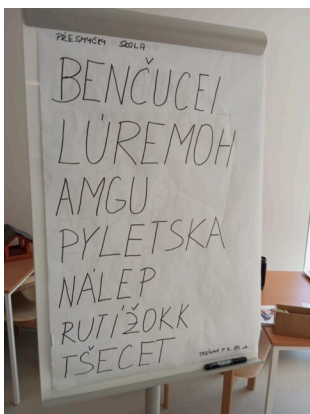 PŘESMYČKY ŠKOLA
BENČUCEI
LÚREMOH
AMGU
PYLETSKA
NÁLEP
RUTÍŽOKK
TŠECET